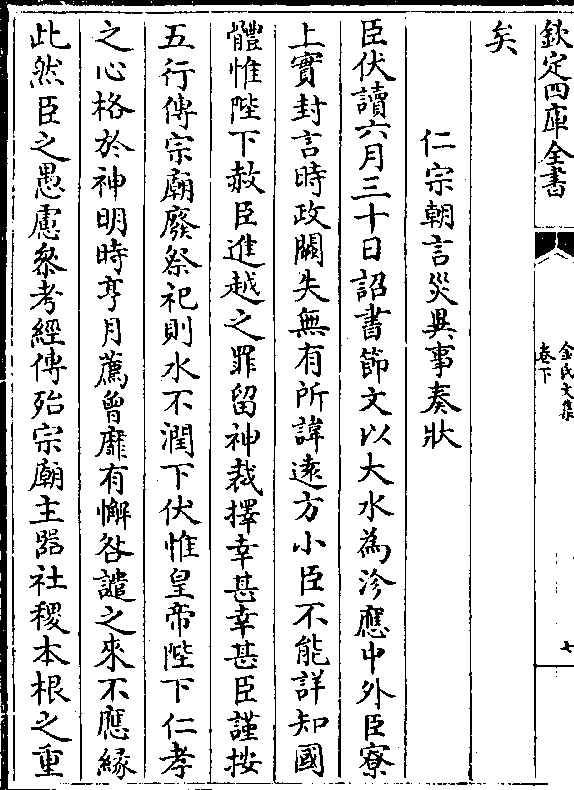 欽定四庫全書
金氏文集
卷下
七
矣
仁宗朝言災異事奏狀
臣伏讀六月三十日詔書節文以大水為沴應中外臣寮
上實封言時政闕失無有所諱逺方小臣不能詳知國
體惟陛下赦臣進越之罪留神裁擇幸甚幸甚臣謹按
五行傳宗廟廢祭祀則水不潤下伏惟皇帝陛下仁孝
之心格於神明時享月薦曾靡有懈咎譴之來不應緣
此然臣之愚慮叅考經傳殆宗廟主器社稷本根之重